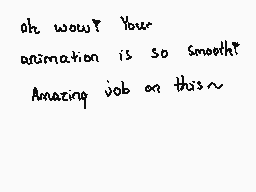 oh wow! Your
animation is so smooth!
Amazing job on this~